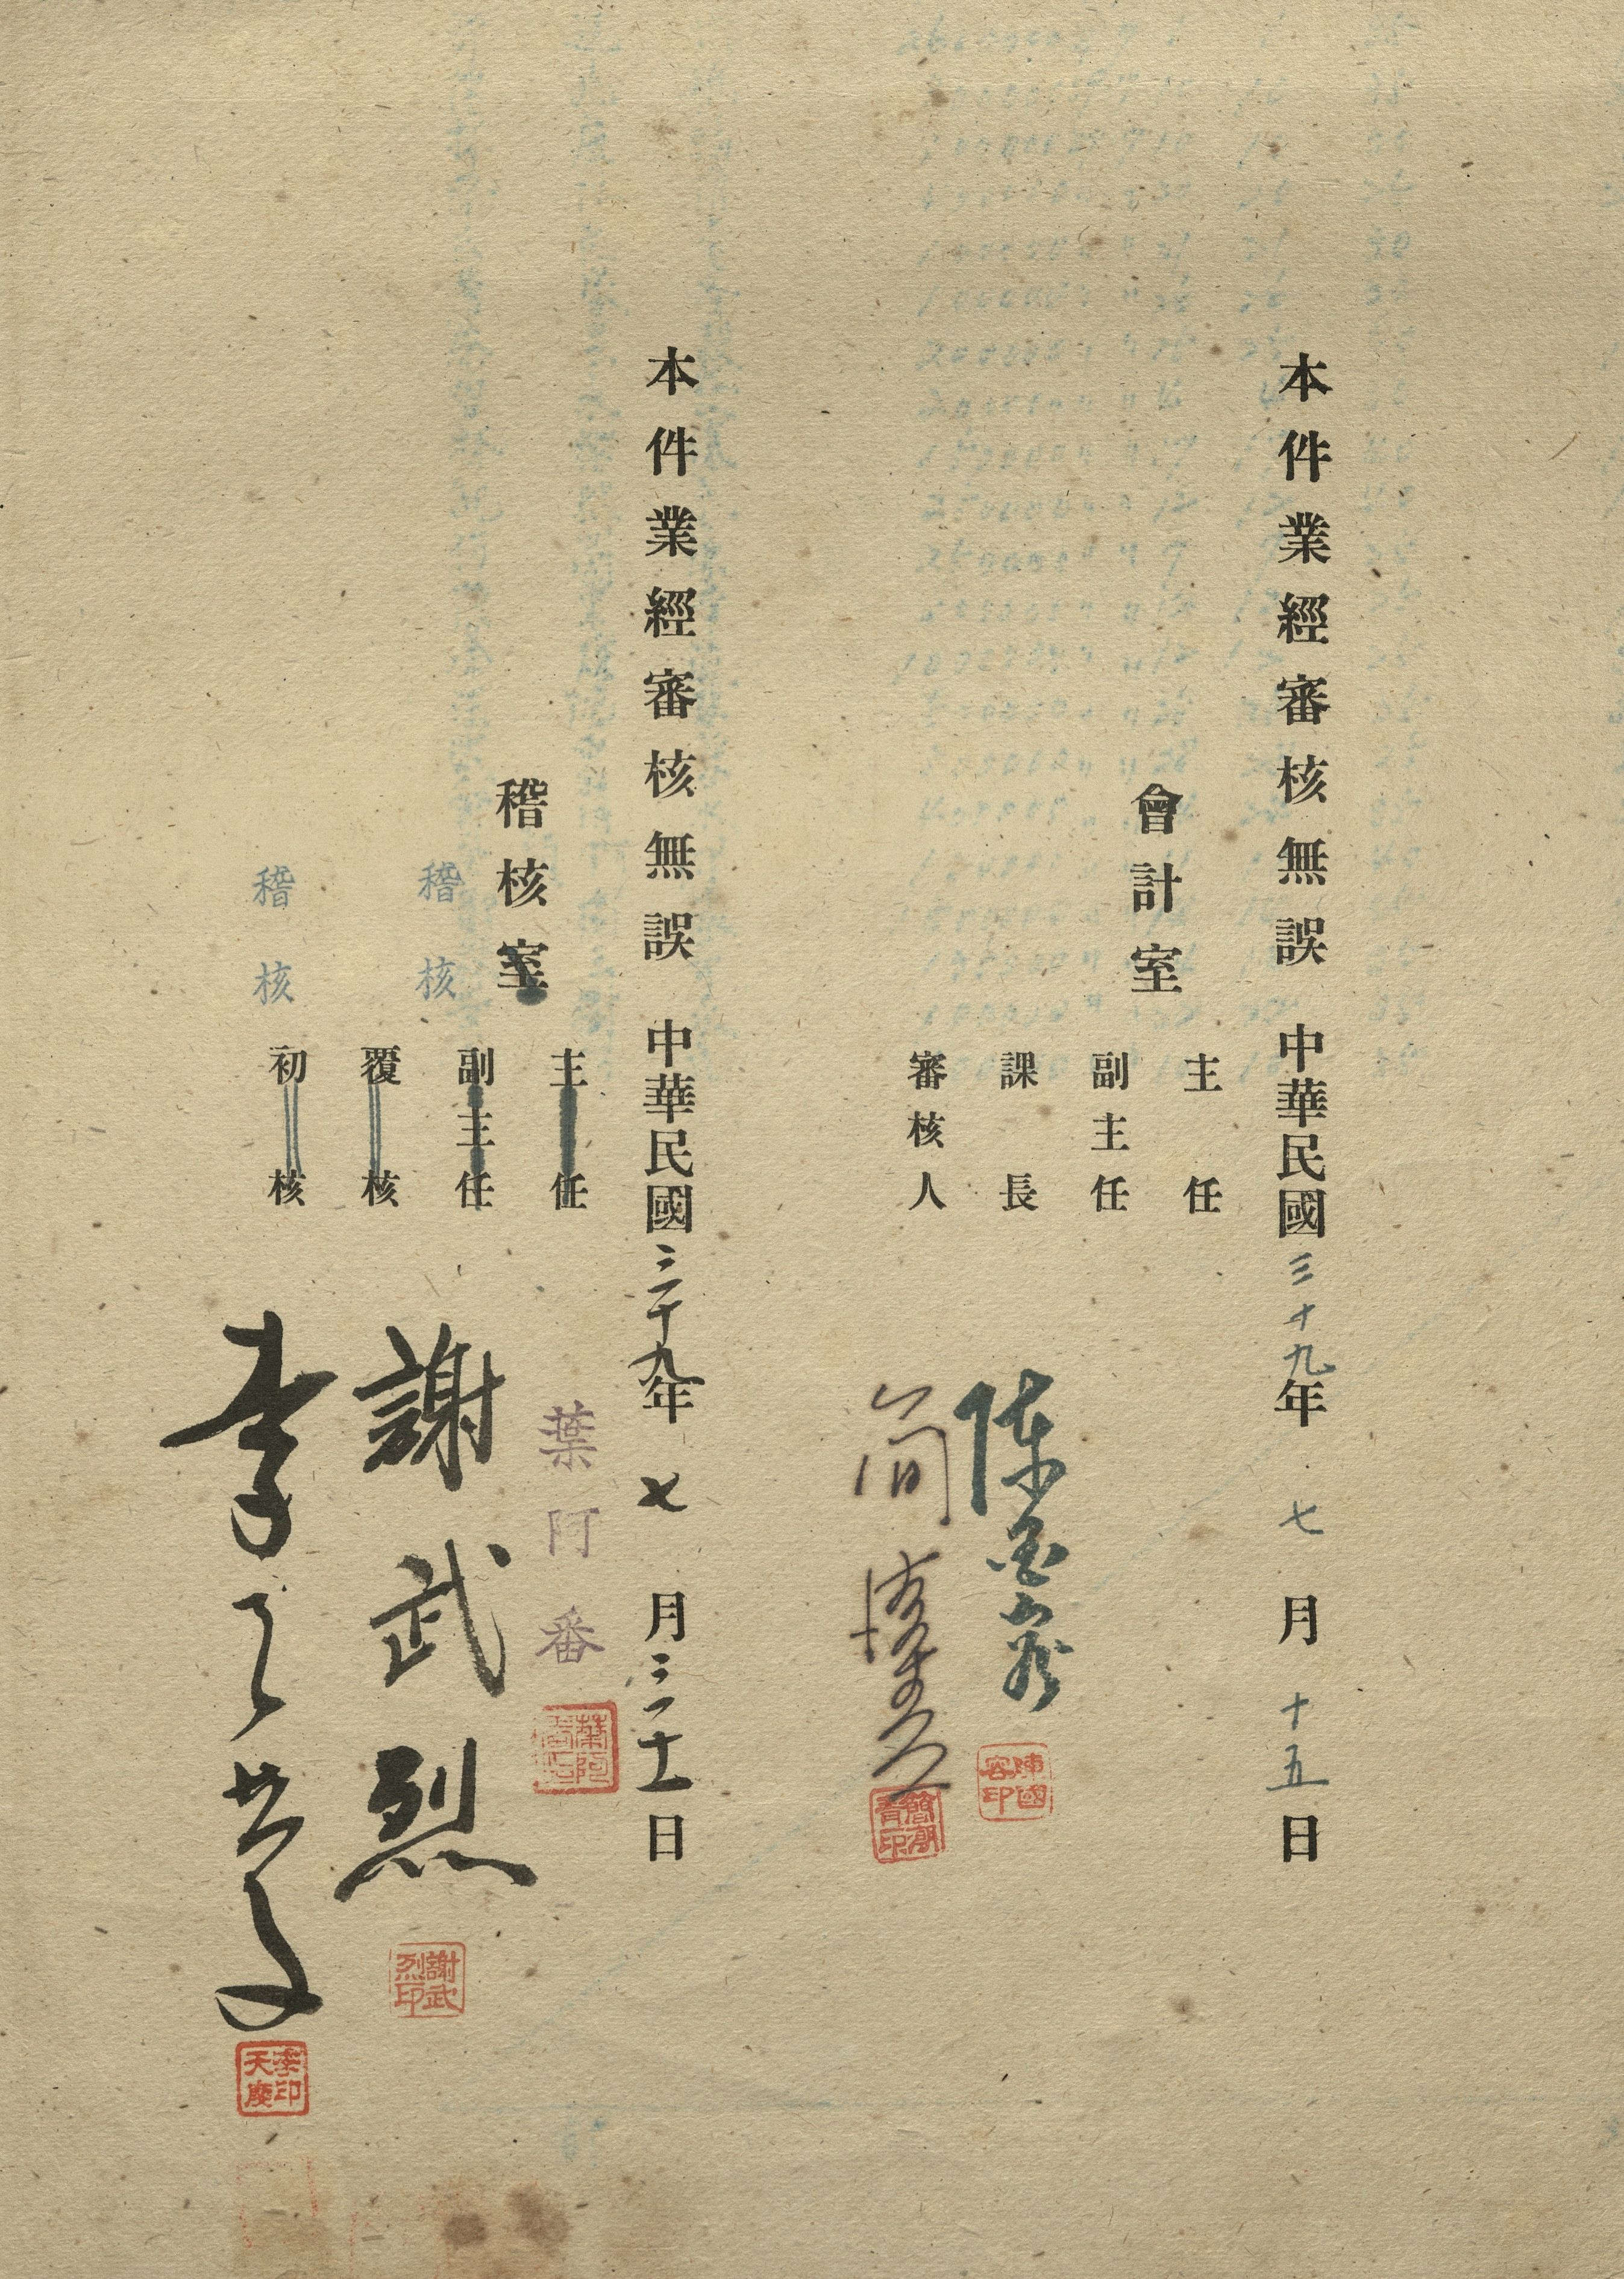 本件業經審核無誤　中華民國三十九年七月十五日
會計室
主任
副主任
課長
審核人
陳國容
陳國容印
簡潮青
簡潮青印
本件業經審核無誤　中華民國三十九年七月三十一日
稽核室
主任
副主任
覆核
初核
稽核
稽核
葉阿番
謝武烈
謝武烈印
李天慶
李印天慶